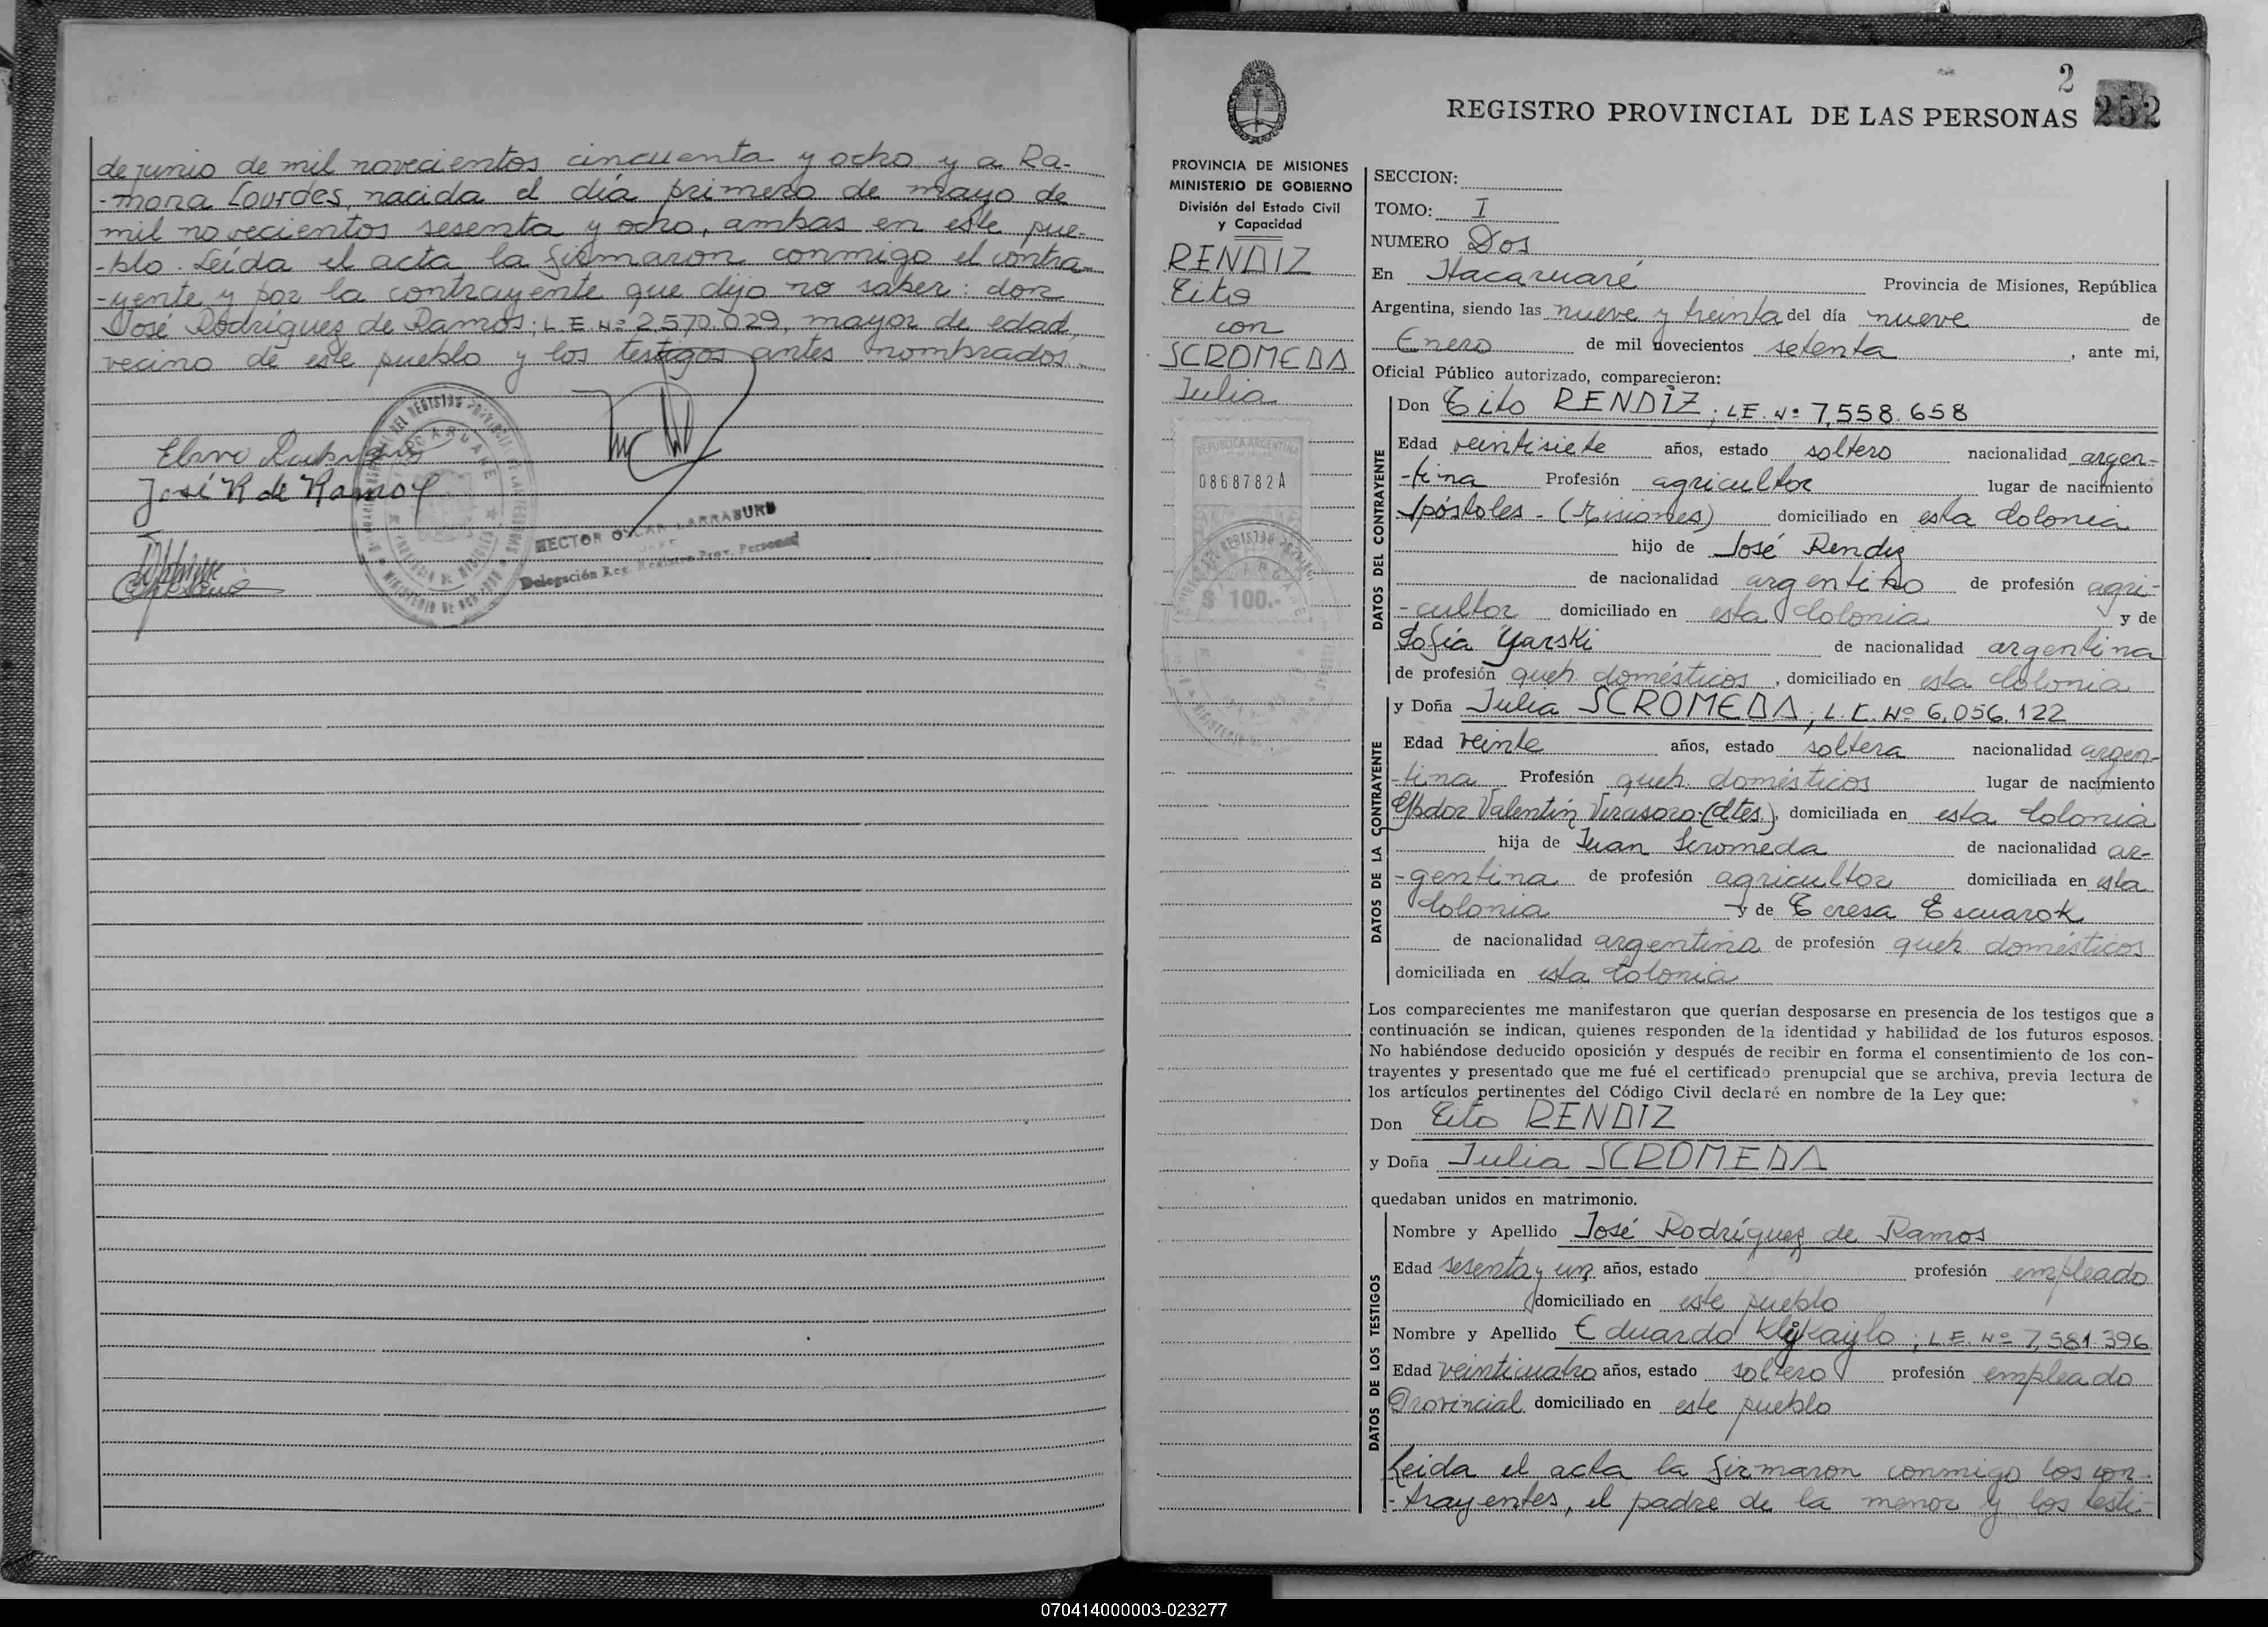 de junio de mil novecientos cincuenta y ocho y a Ra-
-mona Lourdes, nacida el día primero de mayo de
mil novecientos sesenta y ocho, ambas en este pue-
-blo. Leída el acta la firmaron conmigo el contra-
-yente y por la contrayente que dijo no saber: don
José Rodríguez de Ramos; L.E. Nº 2.570.029, mayor de edad,
vecino de este pueblo y los testigos antes nombrados.-
José R de Ramos
HECTOR OSCAR LARRABURU
Delegación Reg. Registro Prov. Personas
2
REGISTRO PROVINCIAL DE LAS PERSONAS 252
PROVINCIA DE MISIONES
MINISTERIO DE GOBIERNO
División del Estado Civil
y Capacidad
RENDIZ
Tito
con
SCROMEDA
Julia
REPUBLICA ARGENTINA
0868782A
$ 100.-
SECCION:
TOMO: I
NUMERO Dos
En Itacaruaré Provincia de Misiones, República
Argentina, siendo las nueve y treinta del día nueve de
Enero de mil novecientos setenta, ante mi,
Oficial Público autorizado, comparecieron:
DATOS DEL CONTRAYENTE
Don Tito RENDIZ; L.E. Nº 7,558.658
Edad veintisiete años, estado soltero nacionalidad argen-
-tina Profesión agricultor lugar de nacimiento
Apóstoles - (Misiones) domiciliado en esta Colonia
hijo de José Rendiz
de nacionalidad argentino de profesión agri-
-cultor domiciliado en esta Colonia y de
Sofía Yarski de nacionalidad argentina
de profesión queh. domésticos, domiciliado en esta Colonia
DATOS DE LA CONTRAYENTE
y Doña Julia SCROMEDA; L.C. Nº 6,056.122
Edad veinte años, estado soltera nacionalidad argen-
-tina Profesión queh. domésticos lugar de nacimiento
Gbdor Valentín Virasoro-(Ctes.), domiciliada en esta Colonia
hija de Juan Scromeda de nacionalidad ar-
-gentina de profesión agricultor domiciliada en esta
Colonia y de Teresa Escuarok
de nacionalidad argentina de profesión queh. domésticos
domiciliada en esta Colonia
Los comparecientes me manifestaron que querían desposarse en presencia de los testigos que a
continuación se indican, quienes responden de la identidad y habilidad de los futuros esposos.
No habiéndose deducido oposición y después de recibir en forma el consentimiento de los con-
trayentes y presentado que me fué el certificado prenupcial que se archiva, previa lectura de
los artículos pertinentes del Código Civil declaré en nombre de la Ley que:
Don Tito RENDIZ
y Doña Julia SCROMEDA
quedaban unidos en matrimonio.
DATOS DE LOS TESTIGOS
Nombre y Apellido José Rodríguez de Ramos
Edad sesenta y un años, estado profesión empleado
domiciliado en este pueblo
Nombre y Apellido Eduardo; L.E. Nº 7,581.396
Edad veinticuatro años, estado soltero profesión empleado
Provincial domiciliado en este pueblo
Leida el acta la firmaron conmigo los con-
-trayentes, el padre de la menor y los testi-
070414000003-023277